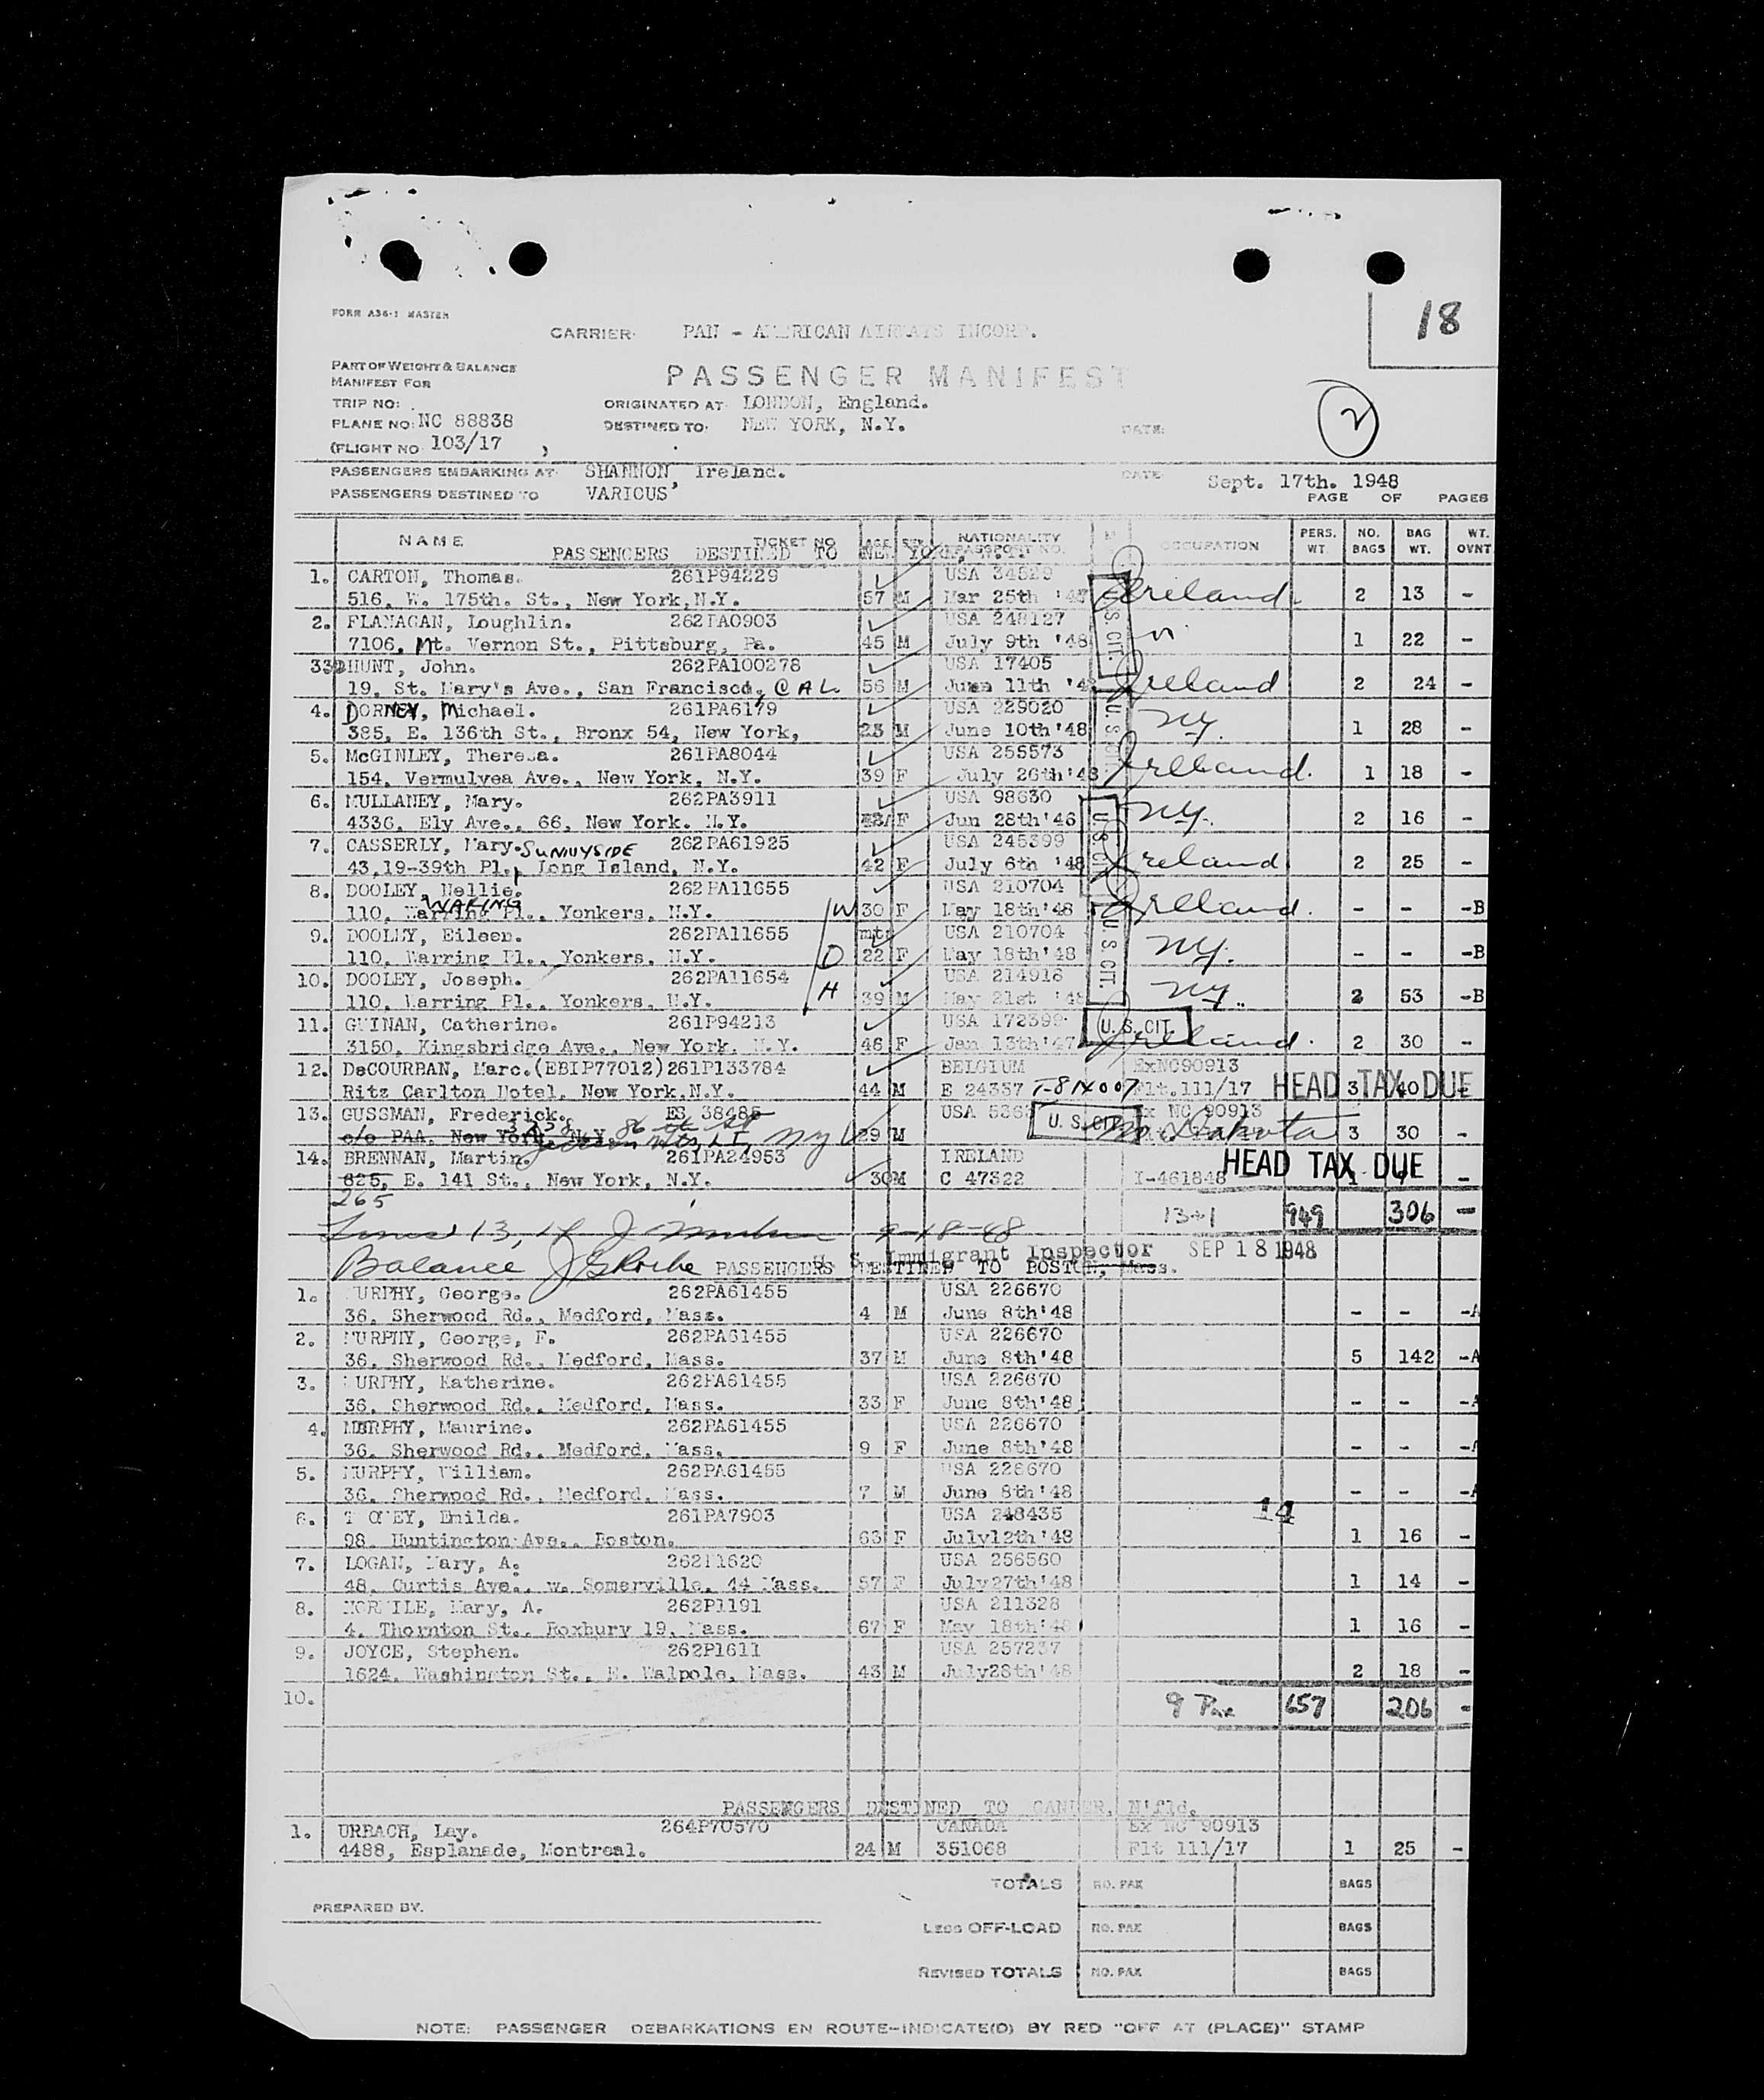 18
FORM A36-1 MASTER
CARRIER: PAN - AMERICAN AIRWAYS INCORP.
PART OF WEIGHT & BALANCE
MANIFEST FOR
PASSENGER MANIFEST
2
TRIP NO:
ORIGINATED AT: LONDON, England.
PLANE NO: NC 88838
DESTINED TO: NEW YORK, N.Y.
DATE:
(FLIGHT NO. 103/17 )
PASSENGERS EMBARKING AT: SHANNON, Ireland.
DATE Sept. 17th. 1948
PASSENGERS DESTINED TO VARIOUS
PAGE OF PAGES
NAME TICKET NO AGE SEX NATIONALITY PASSPORT NO. OCCUPATION PERS. WT. NO. BAGS BAG WT. WT. OVNT
PASSENGERS DESTINED TO NEW YORK, N.Y.
1. CARTON, Thomas. 261P94229 USA 34529
516, W. 175th. St., New York, N.Y. 57 M Mar 25th Ireland 2 13 -
2. FLANAGAN, Loughlin. 262PA0903 USA 248127
7106, Mt. Vernon St., Pittsburg, Pa. 45 M July 9th '48 1 22 -
HUNT, John. 262PA100278 USA 17405
19, St. Mary's Ave., San Francisco, CAL 56 M June 11th Ireland 2 24 -
4. DORNEY, Michael. 261PA6179 USA 229020
385, E. 136th St., Bronx 54, New York, 23 M June 10th '48 NY. 1 28 -
5. McGINLEY, Theresa. 261PA8044 USA 255573
154, Vermulyea Ave., New York, N.Y. 39 F July 26th '48 Ireland. 1 18 -
6. MULLANEY, Mary. 262PA3911 USA 98630
4336, Ely Ave., 66, New York. N.Y. F Jun 28th '46 NY. 2 16 -
7. CASSERLY, Mary. SUNNYSIDE 262PA61925 USA 245399
43,19-39th Pl., Long Island, N.Y. 42 F July 6th '48 Ireland 2 25 -
8. DOOLEY, Nellie. 262PA11655 USA 210704
WARING
110, Warring Pl., Yonkers, N.Y. W 30 F May 18th '48 Ireland. - - -B
9. DOOLEY, Eileen. 262PA11655 mth USA 210704
110, Warring Pl., Yonkers, N.Y. D 22 F May 18th '48 NY. - - -B
10. DOOLEY, Joseph. 262PA11654 USA 214916
110, Warring Pl., Yonkers, N.Y. H 39 M May 21st '48 NY. 2 53 -B
11. GUINAN, Catherine. 261P94213 USA 172399 U.S. CIT.
3150, Kingsbridge Ave., New York, N.Y. 46 F Jan 13th '47 Ireland. 2 30 -
12. DeCOURBAN, Marc. (EBIP77012) 261P133784 BELGIUM ExNC90913
Ritz Carlton Hotel, New York, N.Y. 44 M E 24337 Flt.111/17 HEAD TAX DUE 3 40
13. GUSSMAN, Frederick. ES 38485 USA Ex NC 90913
c/o PAA, New York, N.Y. 86 th St NY 29 M U.S. CIT. No. Dakota 3 30 -
14. BRENNAN, Martin. 261PA24953 IRELAND
825, E. 141 St., New York, N.Y. 30 M C 47322 I-461848 HEAD TAX DUE -
265
13+1 949 306 -
Lines 13, 14 9-18-48
Balance U.S. Immigrant Inspector SEP 18 1948
PASSENGERS DESTINED TO BOSTON, Mass.
1. MURPHY, George. 262PA61455 USA 226670
36, Sherwood Rd., Medford, Mass. 4 M June 8th '48 - - -A
2. MURPHY, George, F. 262PA61455 USA 226670
36, Sherwood Rd., Medford, Mass. 37 M June 8th '48 5 142 -A
3. MURPHY, Katherine. 262PA61455 USA 226670
36, Sherwood Rd., Medford, Mass. 33 F June 8th '48 - - -A
4. MURPHY, Maurine. 262PA61455 USA 226670
36, Sherwood Rd., Medford, Mass. 9 F June 8th '48 - - -A
5. MURPHY, William. 262PA61455 USA 226670
36, Sherwood Rd., Medford, Mass. 7 M June 8th '48 - - -A
14
6. Enilda. 261PA7903 USA 248435
98, Huntington Ave., Boston. 63 F July 12th '48 1 16 -
7. LOGAN, Mary, A. 262P1620 USA 256560
48, Curtis Ave., w. Somerville, 44 Mass. 57 F July 27th '48 1 14 -
8. Mary, A. 262P1191 USA 211328
4, Thornton St., Roxbury 19, Mass. 67 F May 18th '48 1 16 -
9. JOYCE, Stephen. 262P1611 USA 257237
1624, Washington St., E. Walpole, Mass. 43 M July 28th '48 2 18 -
10. 9 Pax 657 206 -
PASSENGERS DESTINED TO GANDER, N'fld.
1. URBACH, Lay. 264P70570 CANADA Ex NC 90913
4488, Esplanade, Montreal. 24 M 351068 Flt 111/17 1 25 -
TOTALS NO. PAX BAGS
PREPARED BY.
LESS OFF-LOAD NO. PAX BAGS
REVISED TOTALS NO. PAX BAGS
NOTE: PASSENGER DEBARKATIONS EN ROUTE-INDICATE(D) BY RED "OFF AT (PLACE)" STAMP